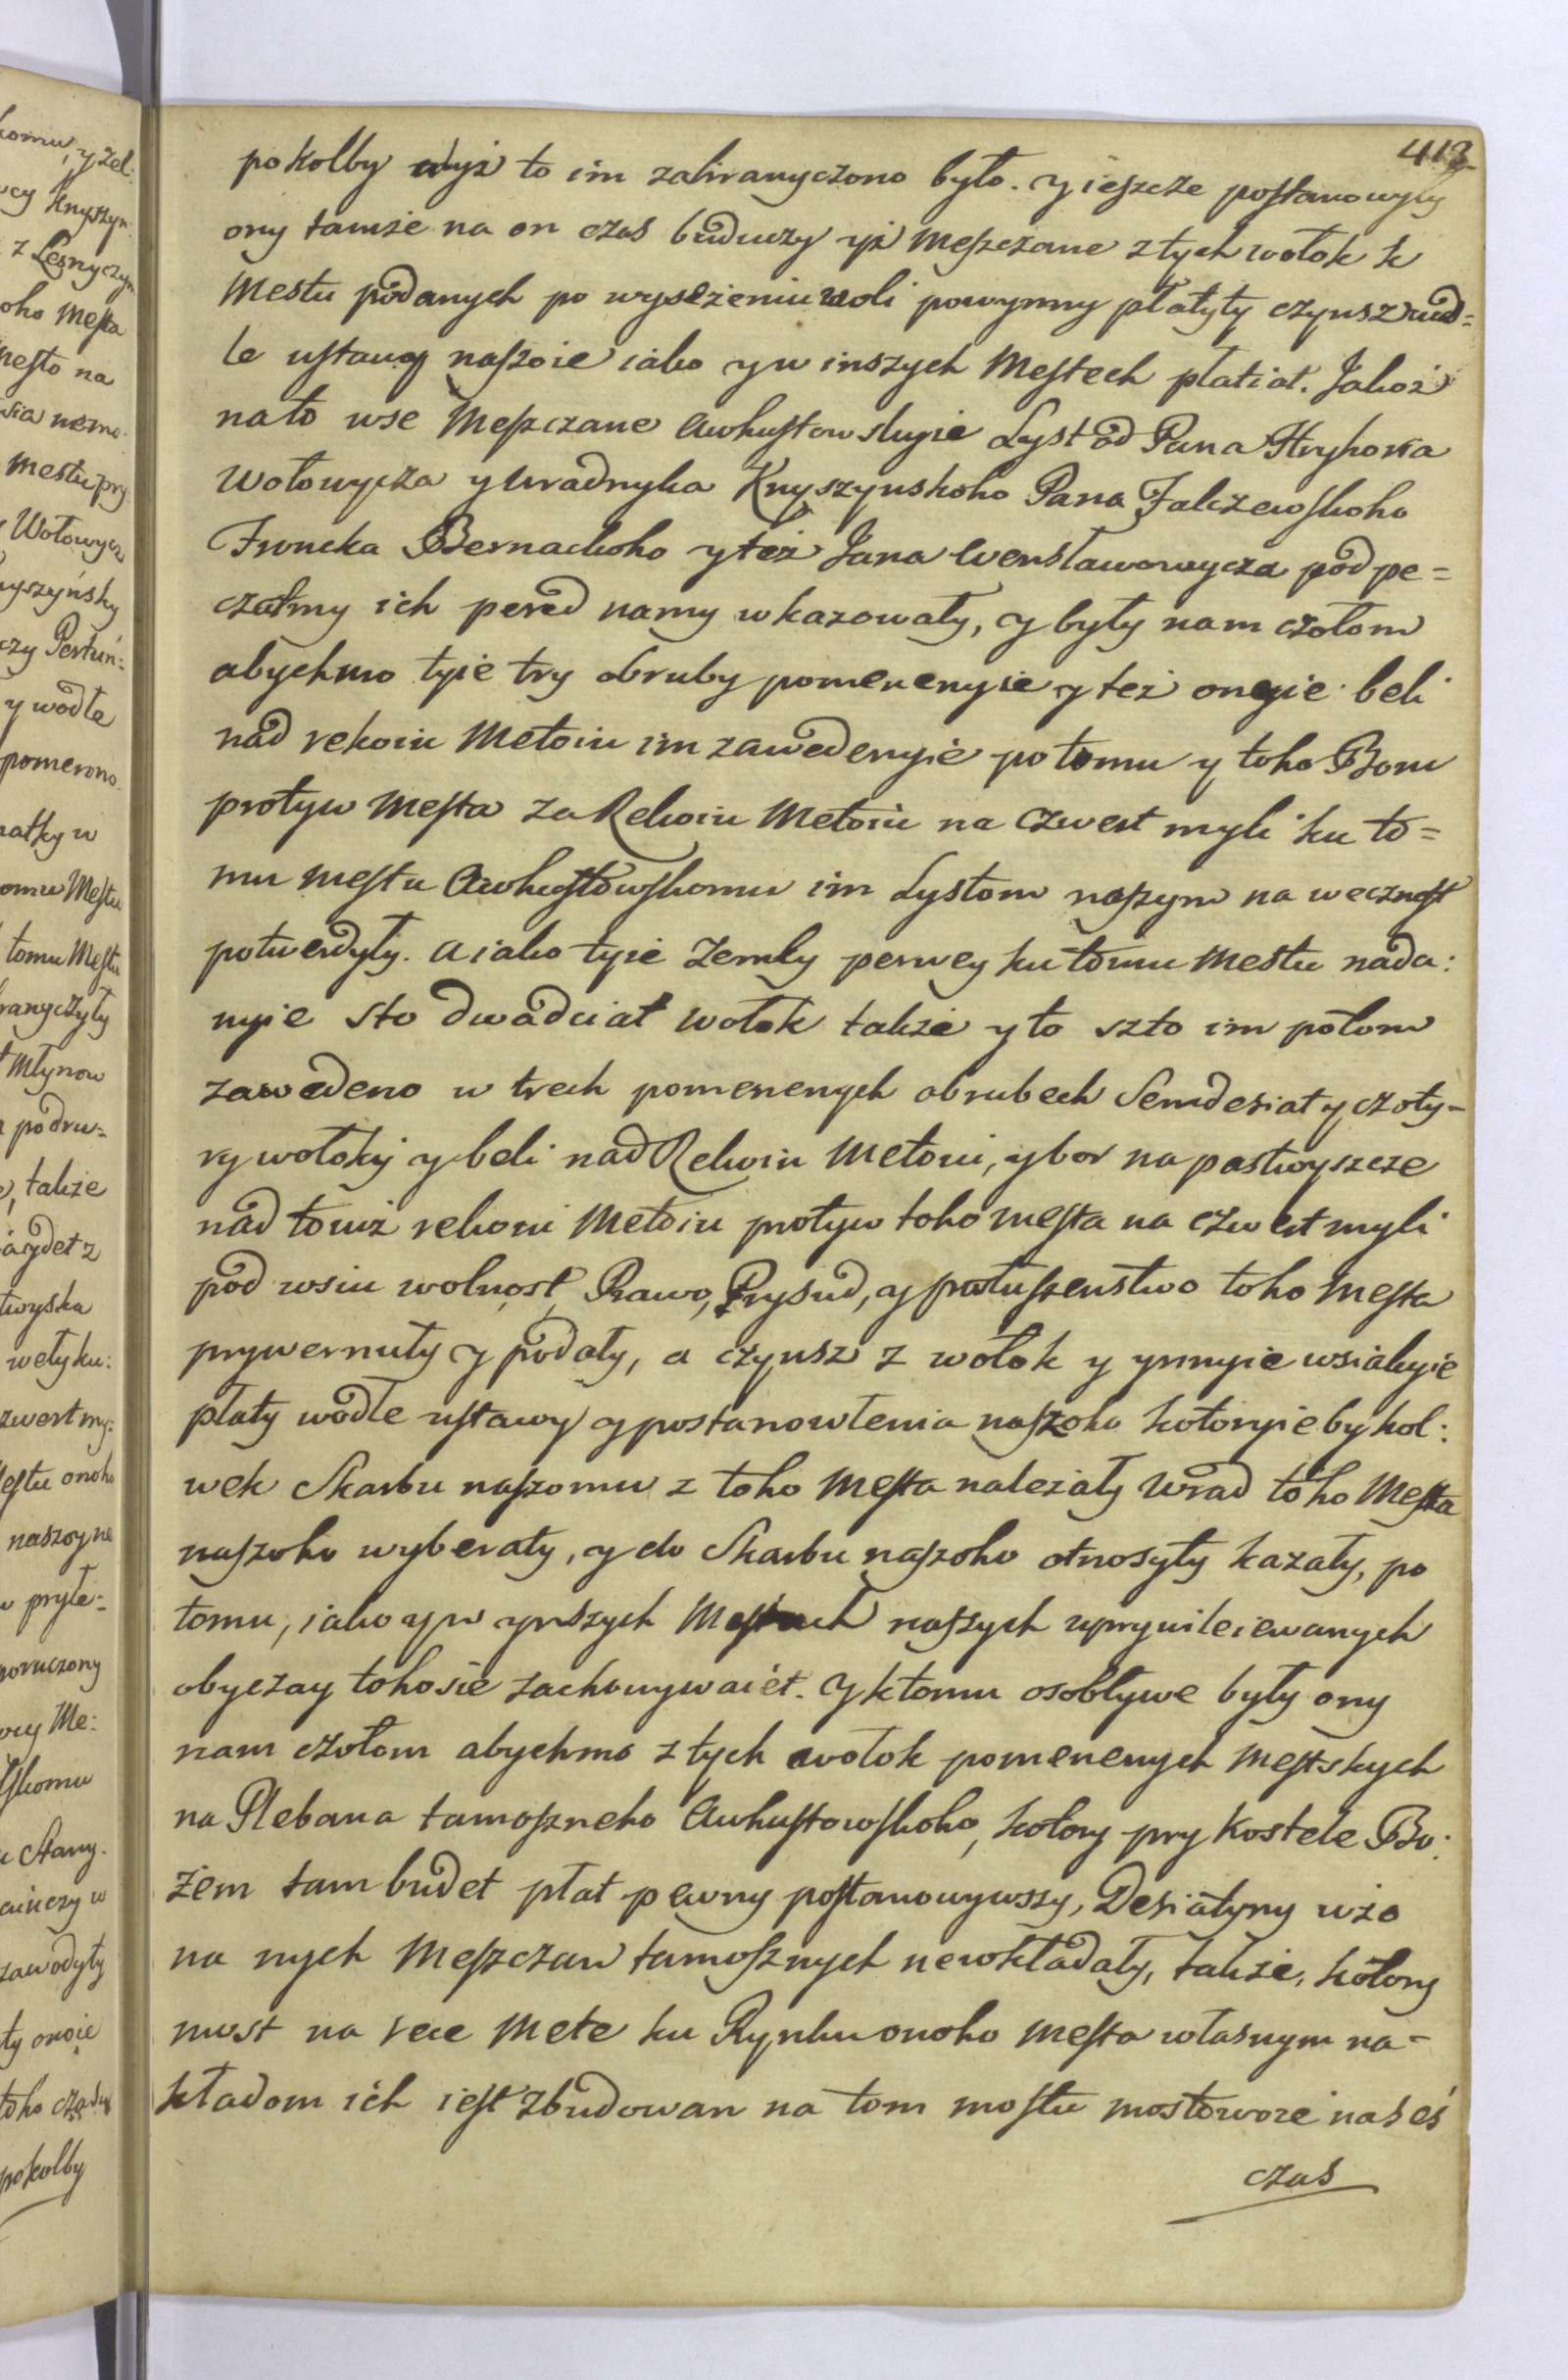 413
pokolby wyż to im zahranyczono było. y ieszcze postanowyły
ony tamże na on czas buduczy yż Meszczane z tych wołok k
Mestu podanych po wyseżeniu woli powynny płatyty czynsz wud=
le ustawy naszoie iako y w inszych Mestech płatiat. Jakoż
na to wse Meszczane Awhustowskyie Lyst od Pana Hryhoria
Wołowycza y Uradnyka Knyszynskoho Pana Falczewskoho
Froncka Bernackoho y też Jana Wenslawowycza pod pe=
czatmy ich pered namy ukazowały, y były nam czołom
abychmo tyie try obruby pomenenyie y też onyie beli
nad rekoiu Metoiu im zawedenyie po tomu y toho Boru
protyw Mesta za Rekoiu Metoiu na czwert myli ku to=
mu mestu Awhustowskomu im Lystom naszym na wecznost
potwerdyły. a iako tyie Zemly perwey ku tomu Mestu nada:
nyie sto dwadciat wołok także y to szto im potom
zawedeno w trech pomenenych obrubech Semdesiat y czoty=
ry wołoky y beli nad Rekoiu Metoiu, y bor na pastwyszcze
nad toiuż rekoiu Metoiu protyw toho mesta na czwert myli
pod wsiu wolnost, Prawo, Prysud, y posłuszenstwo toho Mesta
prywernuły y podały, a czynsz z wołok y ynnyie wsiakyie
płaty wodle ustawy y postanowlenia naszoho kotoryie by kol:
wek Skarbu naszomu z toho Mesta należały Wrad toho Mesta
naszoho wyberaty, y do Skarbu naszoho otnosyty kazały, po
tomu, iako y w ynszych Mestach naszych uprywileiewanych
obyczay toho sie zachowywaiet. Y k tomu osobływe były ony
nam czołom abychmo z tych wołok pomenenych Mestskych
na Plebana tamoszneho Awhustowskoho, kotory pry Kostele Bo:
żem tam budet płat pewny postanowywszy, Desiatyny użo
na nych Meszczan tamosznych ne wkładały, także, kotory
most na rece Mete ku Rynku onoho Mesta własnym na=
kładom ich iest zbudowan na tom mostu mostowoie na ses
czas